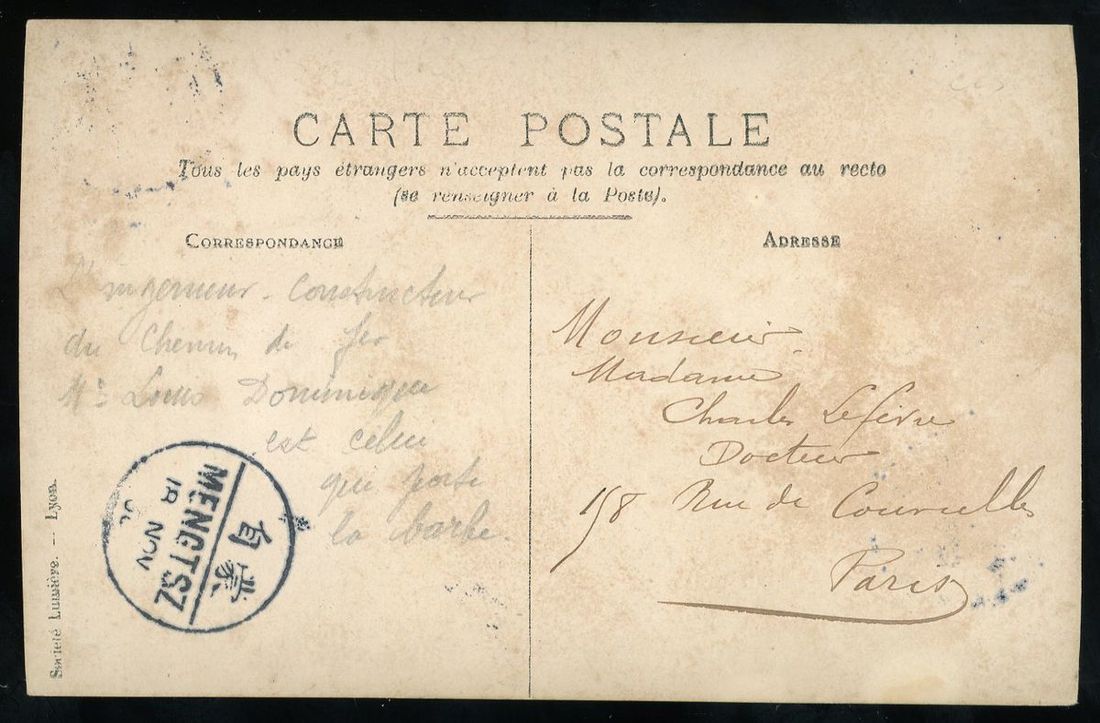 CARTE POSTALE
Tous les pays étrangers n'acceptent pas la correspondance au recto
(se renseigner à la Poste).
CORRESPONDANCE
L'ingenieur-Constructeur
du Chemin de fer
Mr Louis Dominique
est celui
qui porte
la barbe.
ADRESSE
Monsieur
Madame
Charles Lefèvre
Docteur
158 Rue de Courcelles
Paris
MENGTSZ
18 NOV
蒙自
Société Lumière. — Lyon.